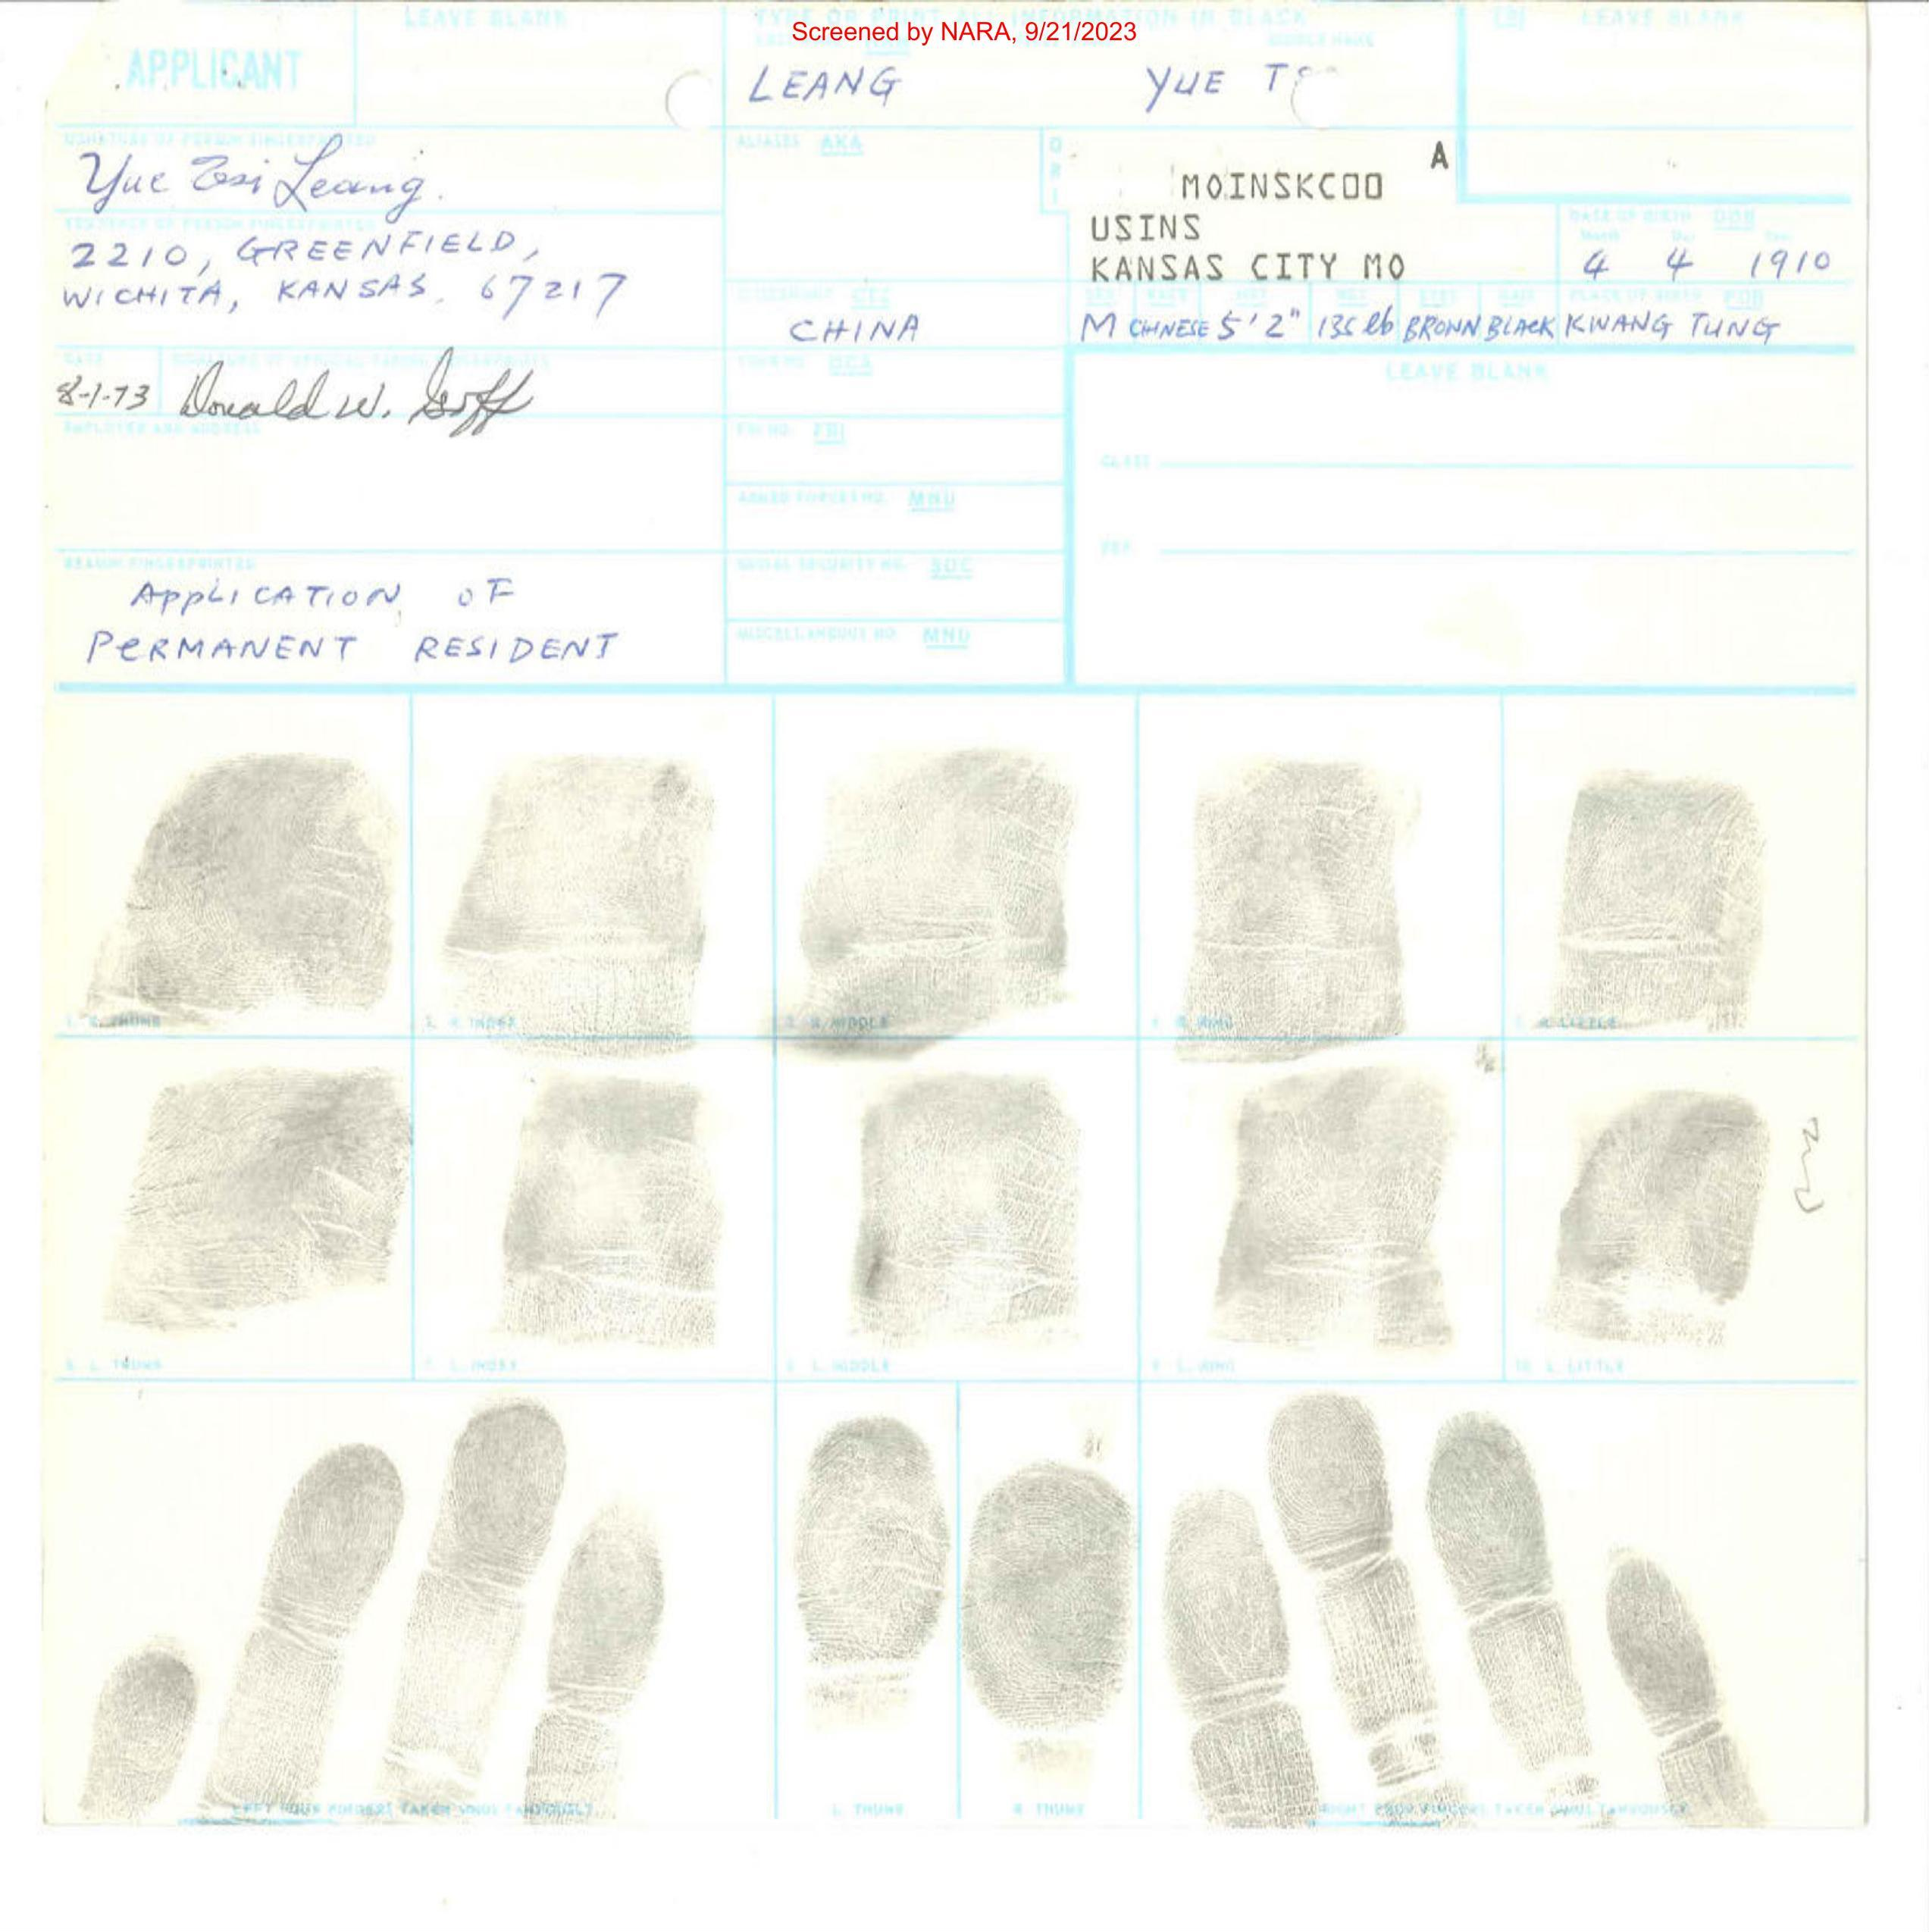 Screened by NARA, 9/21/2023
LEAVE BLANK
TYPE OR PRINT ALL INFORMATION IN BLACK
FBI LEAVE BLANK
APPLICANT
LEANG YUE
SIGNATURE OF PERSON FINGERPRINTED
Yue Tsi Leang.
ALIASES AKA
O
R
I
A
MOINSKC00
USINS
KANSAS CITY MO
RESIDENCE OF PERSON FINGERPRINTED
2210, GREENFIELD,
WICHITA, KANSAS, 67217
DATE OF BIRTH DOB
Month Day Year
4 4 1910
CITIZENSHIP CTZ
CHINA
SEX RACE HGT WGT EYES HAIR PLACE OF BIRTH POB
M CHINESE 5'2" 135 lb BROWN BLACK KWANG TUNG
DATE SIGNATURE OF OFFICIAL TAKING FINGERPRINTS
8-1-73 Donald W. Goff
YOUR NO. OCA
LEAVE BLANK
EMPLOYER AND ADDRESS
FBI NO. FBI
CLASS
ARMED FORCES NO. MNU
REF.
REASON FINGERPRINTED
APPLICATION OF
PERMANENT RESIDENT
SOCIAL SECURITY NO. SOC
MISCELLANEOUS NO. MNU
1. R. THUMB
2. R. INDEX
3. R. MIDDLE
4. R. RING
5. R. LITTLE
6. L. THUMB
7. L. INDEX
8. L. MIDDLE
9. L. RING
10. L. LITTLE
LEFT FOUR FINGERS TAKEN SIMULTANEOUSLY
L. THUMB
R. THUMB
RIGHT FOUR FINGERS TAKEN SIMULTANEOUSLY